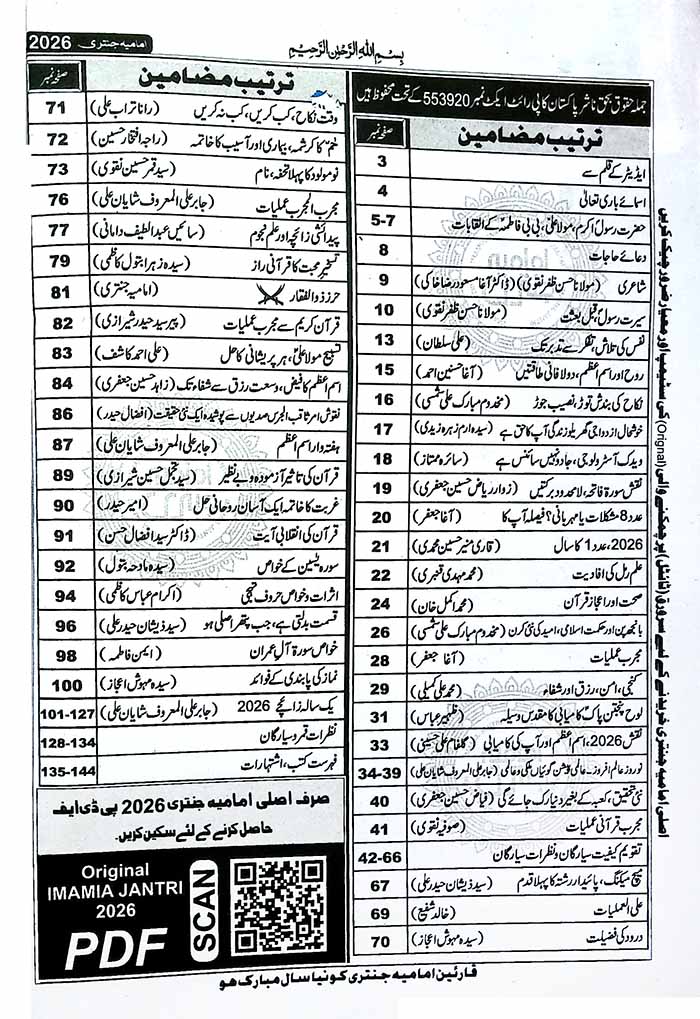 امامیہ جنتری 2026
بسم اللہ الرحمٰن الرحیم
جملہ حقوق بحق ناشر پاکستان کاپی رائٹ ایکٹ نمبر 553920 کے تحت محفوظ ہیں
ترتیب مضامین صفحہ نمبر
ایڈیٹر کے قلم سے 3
اسمائے باری تعالیٰ 4
حضرت رسول اکرم، مولا علی، بی بی فاطمہ کے القابات 5-7
دعائے حاجات 8
شاعری (مولانا حسن ظفر نقوی) (ڈاکٹر آغا مسعود رضا خاکی) 9
سیرت رسول قبل بعثت (مولانا حسن ظفر نقوی) 10
نفس کی تلاش، تفکر سے تدبر تک (علی سلطان) 13
روح اور اسم اعظم، دو لافانی طاقتیں (آغا حسنین احمد) 15
نکاح کی بندش توڑ نصیب جوڑ (مخدوم مبارک علی شمسی) 16
خوشحال ازدواجی گھریلو زندگی آپ کا حق ہے (سیدہ ارم زہرہ زیدی) 17
ویدک آسٹرولوجی، جادو نہیں سائنس ہے (سائرہ ممتاز) 18
نقش سورۃ فاتحہ، لامحدود برکتیں (زوار ریاض حسین جعفری) 19
عدد 8 مشکلات یا مہربانی؟ فیصلہ آپ کا (آغا جعفر) 20
2026، عدد 1 کا سال (قاری منیر حسین محمدی) 21
علم رمل کی افادیت (محمد مہدی قنبری) 22
صحت اور اعجاز قرآن (محمد اکمل خان) 24
بانجھ پن اور حکمت اسلامی، امید کی نئی کرن (مخدوم مبارک علی شمسی) 26
مجرب عملیات (آغا جعفر) 28
کنجی، امن، رزق اور شفاء (محمد علی کمیلی) 29
لوح پنجتن پاک کامیابی کا مقدس وسیلہ (ظہیر عباس) 31
نقش 2026، اسم اعظم اور آپ کی کامیابی (گلفام علی حسینی) 33
نوروز عالم افروز۔ عالمی پیشن گوئیاں ملکی و عالمی (جابر علی المعروف شایان علی) 34-39
نئی تحقیق، کعبہ کے بغیر دنیا رک جائے گی (فیاض حسین جعفری) 40
مجرب قرآنی عملیات (صوفیہ نقوی) 41
تقویم کیفیت سیارگان و نظرات سیارگان 42-66
میچ میکنگ، پائیدار رشتہ کا پہلا قدم (سید ذیشان حیدر علی) 67
علی العملیات (خالد شفیع) 69
درود کی فضیلت (سیدہ مہوش اعجاز) 70
ترتیب مضامین صفحہ نمبر
وقت نکاح، کب کریں، کب نہ کریں (رانا تراب علی) 71
خم کا کرشمہ، بیماری اور آسیب کا خاتمہ (راجہ افتخار حسین) 72
نومولود کا پہلا تحفہ، نام (سید قمر حسین نقوی) 73
مجرب المجرب عملیات (جابر علی المعروف شایان علی) 76
پیدائشی زائچہ اور علم نجوم (سائیں عبد الطیف دامانی) 77
تسخیر محبت کا قرآنی راز (سیدہ زہرا بتول کاظمی) 79
حرز ذوالفقار (امامیہ جنتری) 81
قرآن کریم سے مجرب عملیات (پیر سید حیدر شیرازی) 82
تسبیح مولا علی، ہر پریشانی کا حل (علی احمد کاشف) 83
اسم اعظم کا فیض، وسعت رزق سے شفاء تک (زاہد حسین جعفری) 84
نقوش امر ثاقب الجرس صدیوں سے پوشیدہ ایک حقیقت (افضال حیدر) 86
ہفتہ وار اسم اعظم (جابر علی المعروف شایان علی) 87
قرآن کی تاثیر آزمودہ و بے نظیر (سید تجمل حسین شیرازی) 89
غربت کا خاتمہ ایک آسان روحانی حل (امیر حیدر) 90
قرآن کی انقلابی آیت (ڈاکٹر سید افضال حسن) 91
سورہ یٰسین کے خواص (سیدہ مادحہ بتول) 92
اثرات و خواص حروف تہجی (اکرام عباس کاظمی) 94
قسمت بدلتی ہے، جب پتھر اصلی ہو (سید ذیشان حیدر علی) 96
خواص سورۃ آل عمران (ایمن فاطمہ) 98
نماز کی پابندی کے فوائد (سیدہ مہوش اعجاز) 100
یک سالہ زائچے 2026 (جابر علی المعروف شایان علی) 101-127
نظرات قمر و سیارگان 128-134
فہرست کتب، اشتہارات 135-144
صرف اصلی امامیہ جنتری 2026 پی ڈی ایف
حاصل کرنے کے لئے سکین کریں۔
Original
IMAMIA JANTRI
2026
PDF
SCAN
قارئین امامیہ جنتری کو نیا سال مبارک ہو
اصلی امامیہ جنتری خریدنے کے لیے سرورق (ٹائٹل) پر چمکنے والی (Orignal) کی سٹیمپ اور معیار ضرور چیک کریں